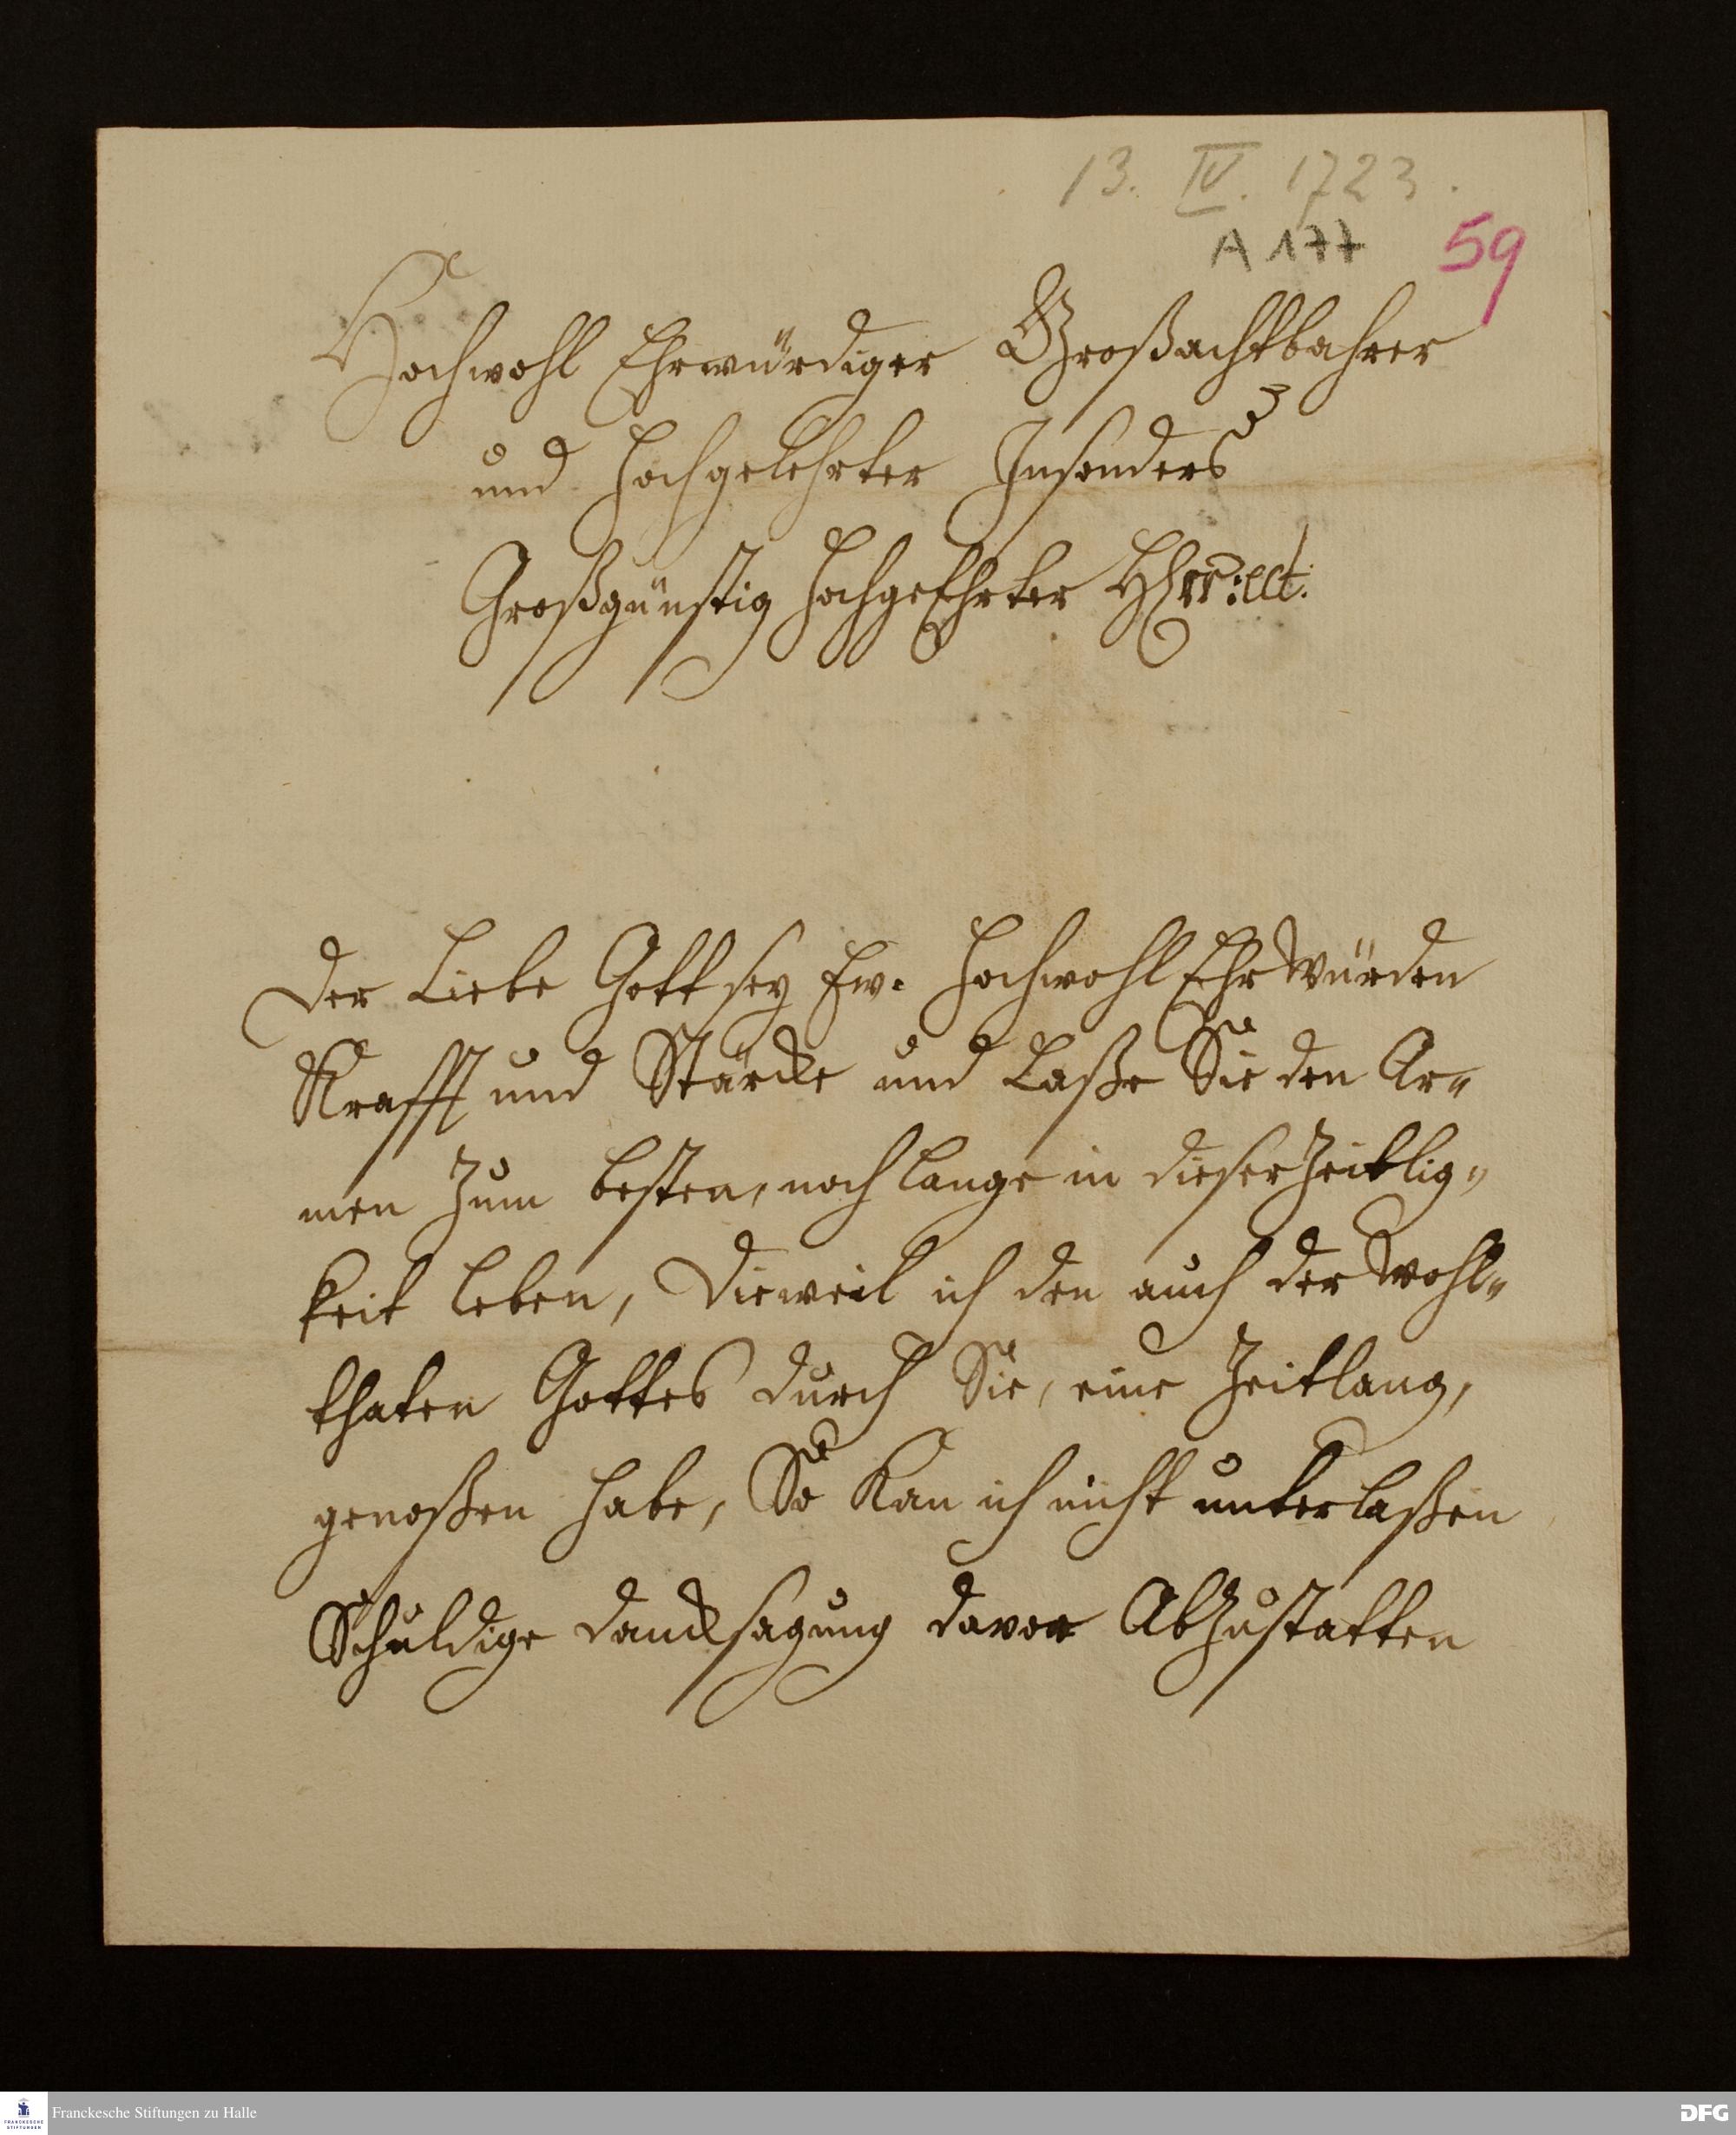 13. IV. 1723.
A 177 59
Hochwohl Ehrwürdiger Großachtbahrer
und Hochgelehrter Insonders
Großgünstig HochgeEhrter Herr: ect.
Der Liebe Gott sey Ew. HochwohlEhrWürden
Krafft und Stärcke und Laße Sie den Ar„
men Zum besten, noch lange in dieser Zeitlig„
keit leben, Dieweil ich den auch der Wohl„
thaten Gottes durch Sie, eine Zeitlang,
genoßen habe, So Kan ich nicht unterlaßen
Schuldige dancksagung davor AbZustatten
Franckesche Stiftungen zu Halle
DFG